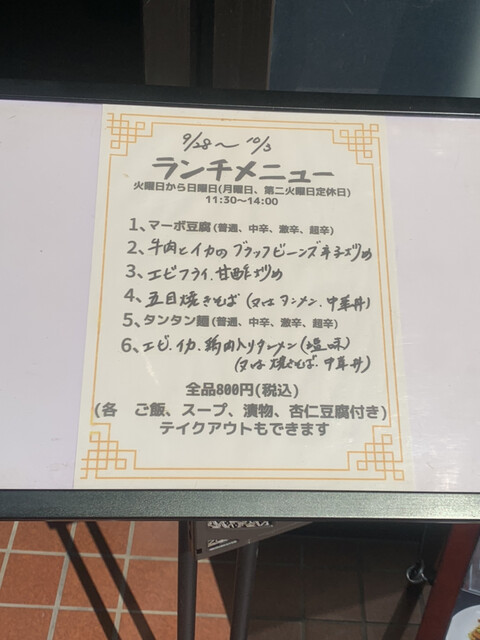 9/28〜10/3
ランチメニュー
火曜日から日曜日(月曜日、第二火曜日定休日)
11:30〜14:00
1、マーボ豆腐(普通、中辛、激辛、超辛)
2、牛肉とイカのブラックビーンズ辛子炒め
3、エビフライ.甘酢炒め
4、五目焼きそば(又はタンメン.中華丼)
5、タンタン麺(普通、中辛、激辛、超辛)
6、エビ.イカ.鶏肉入りタンメン(塩味)
(又は焼きそば.中華丼)
全品800円(税込)
(各 ご飯、スープ、漬物、杏仁豆腐付き)
テイクアウトもできます